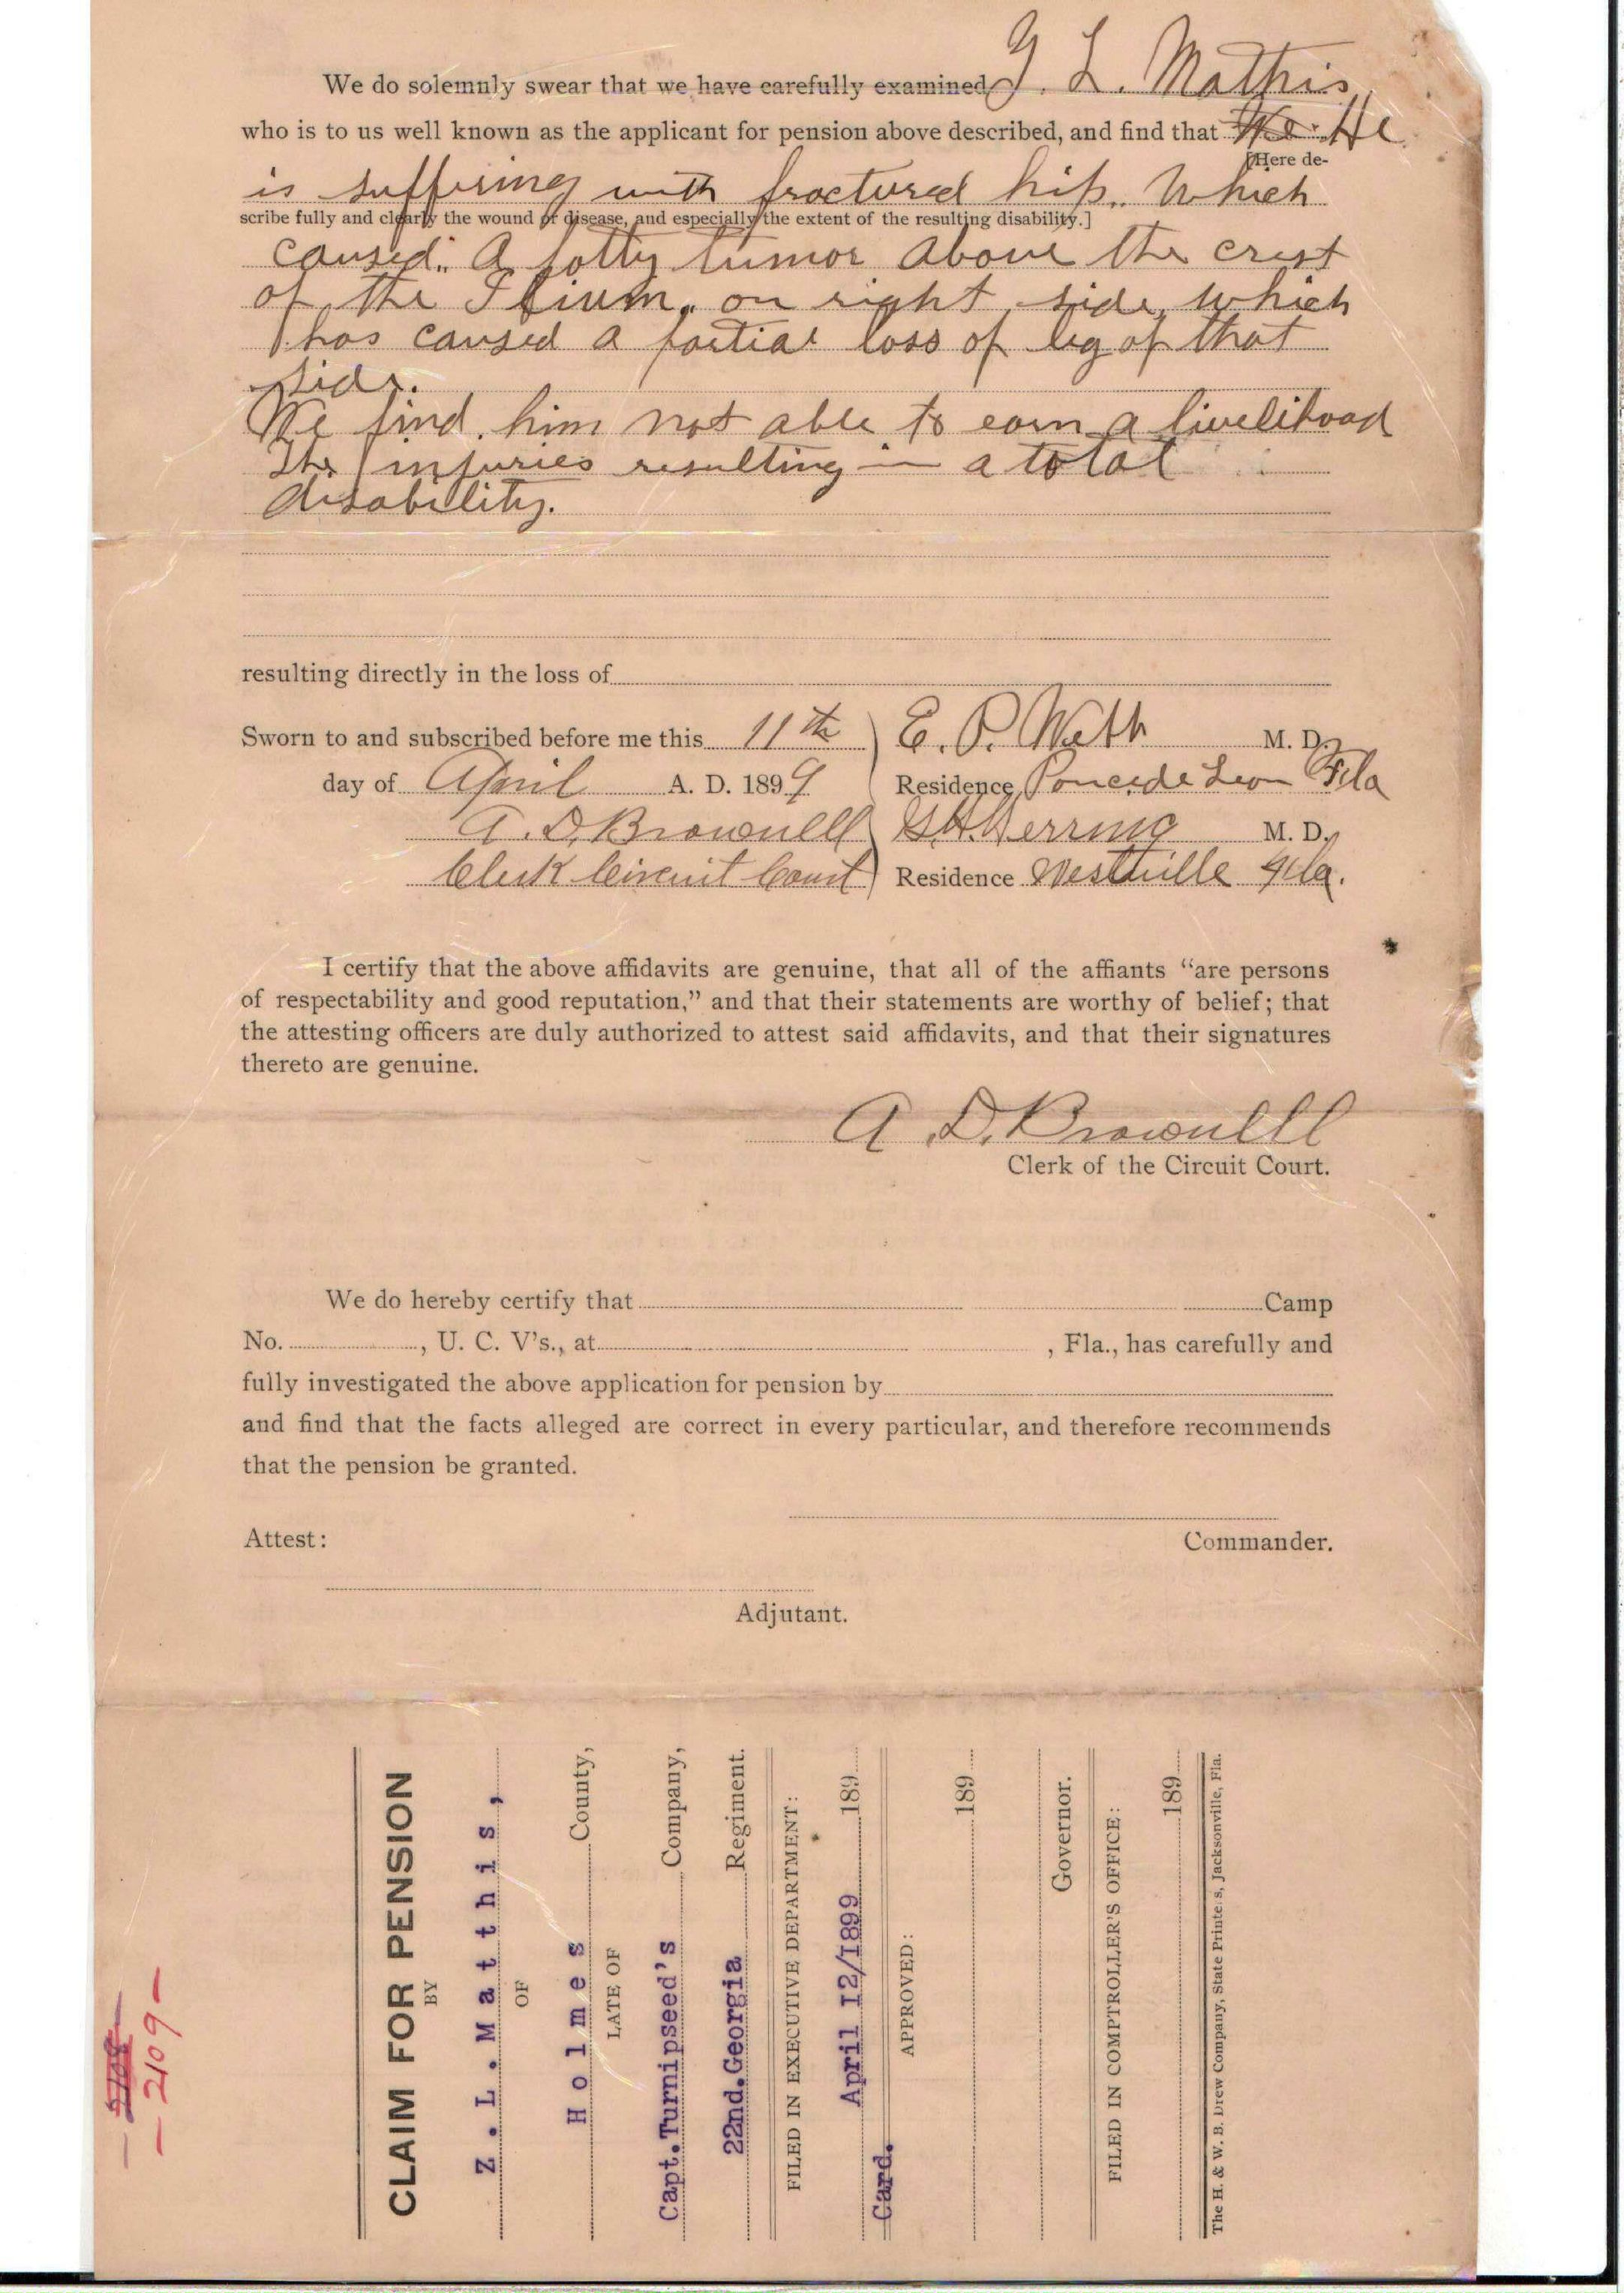 We do solemnly swear that we have carefully examined Z. L. Mathis
who is to us well known as the applicant for pension above described, and find that We He
[Here de-
is suffering with fractured hip. Which
scribe fully and clearly the wound or disease, and especially the extent of the resulting disability.]
caused. A fatty tumor above the crest
of the Ilium, on right side, which
has caused a partial loss of leg of that
side.
We find him not able to earn a livelihood
The injuries resulting in a total
disability.
resulting directly in the loss of
Sworn to and subscribed before me this 11th E. P. Webb M. D.
day of April A. D. 1899 Residence Ponce de Leon Fla
A. D. Brownell Herring M. D.
Clerk Circuit Court Residence Westville Fla.
I certify that the above affidavits are genuine, that all of the affiants “are persons
of respectability and good reputation,” and that their statements are worthy of belief; that
the attesting officers are duly authorized to attest said affidavits, and that their signatures
thereto are genuine.
A. D. Brownell
Clerk of the Circuit Court.
We do hereby certify that Camp
No. , U. C. V's., at , Fla., has carefully and
fully investigated the above application for pension by
and find that the facts alleged are correct in every particular, and therefore recommends
that the pension be granted.
Attest: Commander.
Adjutant.
2109
CLAIM FOR PENSION
BY
Z. L. Matthis,
OF
Holmes County,
LATE OF
Capt. Turnipseed's Company,
22nd. Georgia Regiment.
FILED IN EXECUTIVE DEPARTMENT:
April 12/1899 189
Card.
APPROVED:
189
Governor.
FILED IN COMPTROLLER'S OFFICE:
189
The H. & W. B. Drew Company, State Printers, Jacksonville, Fla.